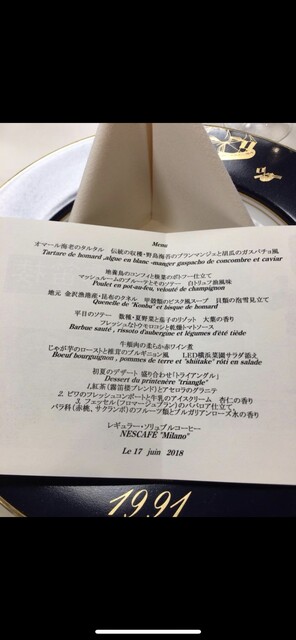 Menu
オマール海老のタルタル 伝統の収穫・野島海苔のブランマンジェと胡瓜のガスパチョ風
Tartare de homard ,algue en blanc-manger gaspacho de concombre et caviar
地養鳥のコンフィと根菜のポトフー仕立て
マッシュルームのブルーテとそのソテー 白トリュフ旅風味
Poulet en pot-au-feu, velouté de champignon
地元 金沢漁港産・昆布のクネル 甲殻類のビスク風スープ 貝類の泡雪見立て
Quenelle de "Konbu" et bisque de homard
平目のソテー 数種・夏野菜と茄子のリゾット 大葉の香り
フレッシュなトウモロコシと乾燥トマトソース
Barbue sauté , rissoto d'aubergine et légumes d'été tiède
牛頬肉の柔らか赤ワイン煮
じゃが芋のローストと椎茸のブルギニョン風 LED横浜菜園サラダ添え
Boeuf bourguignon , pommes de terre et "shiitake" rôti en salade
初夏のデザート 盛り合わせ「トライアングル」
Dessert du printenèee "triangle"
1,紅茶(霧笛楼ブレンド)とアセロラのグラニテ
2. ビワのフレッシュコンポートと牛乳のアイスクリーム 杏仁の香り
3. フェッセル(フロマージュブラン)のババロア仕立て、
バラ科(赤桃、サクランボ)のフルーツ類とブルガリアンローズ水の香り
レギュラー・ソリュブルコーヒー
NESCAFÉ "Milano"
Le 17 juin 2018
1991